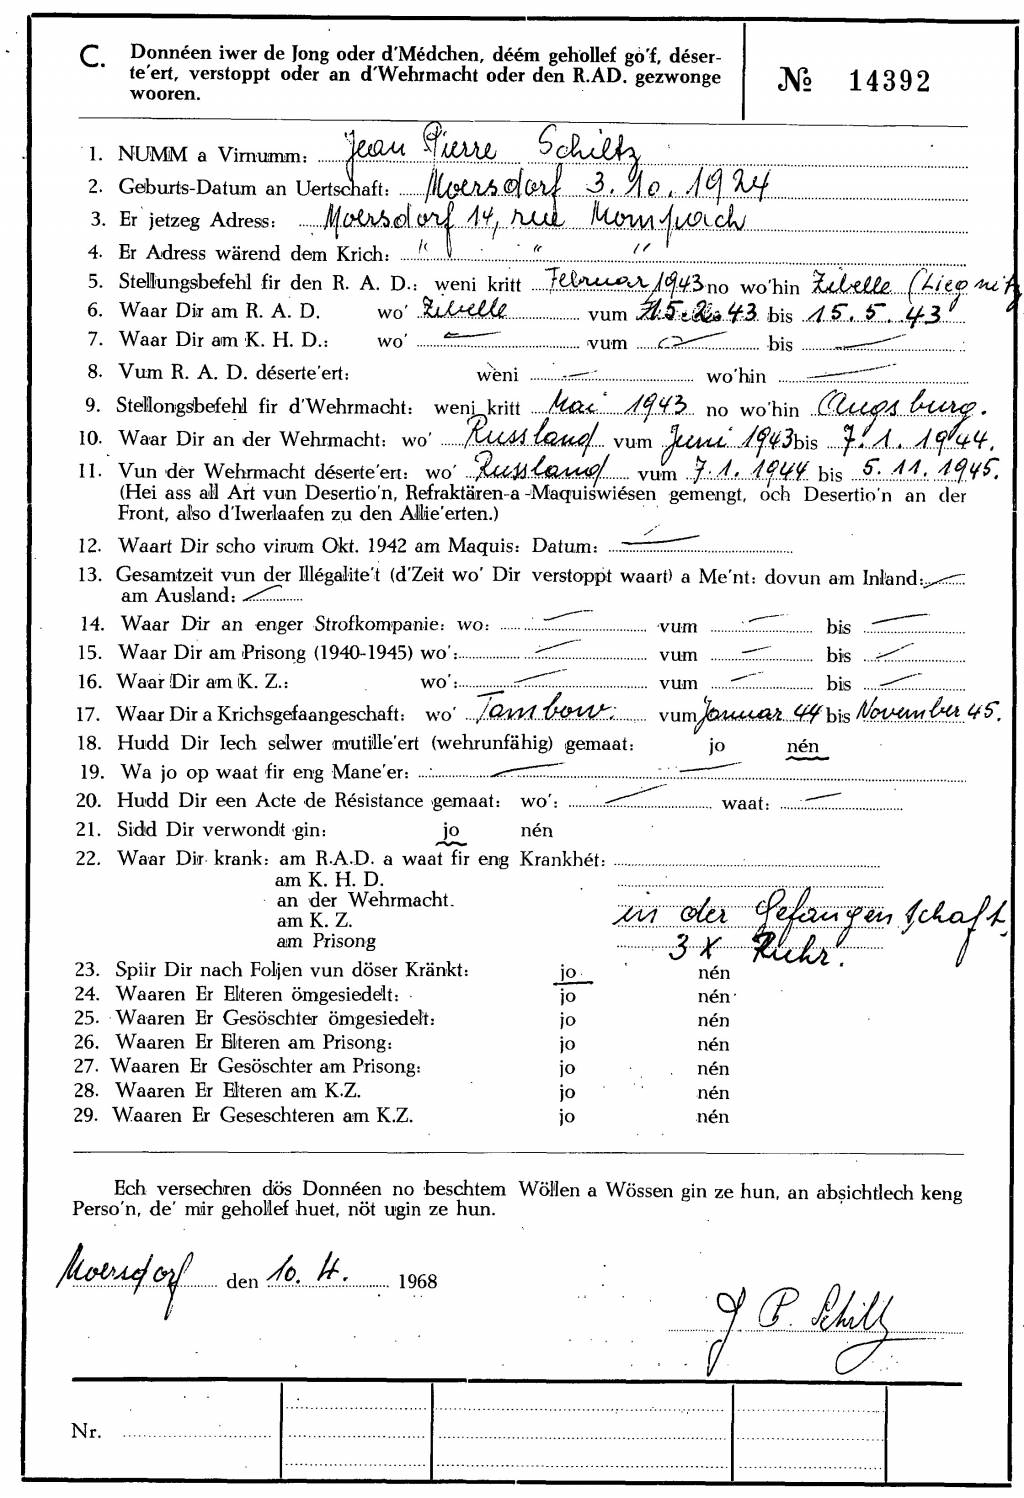 C. Donnéen iwer de Jong oder d'Médchen, déém gehollef go'f, déser-
te'ert, verstoppt oder an d'Wehrmacht oder den R.AD. gezwonge
wooren.
№ 14392
1. NUMM a Virnumm: Jean Pierre Schiltz
2. Geburts-Datum an Uertschaft: Moersdorf 3.10.1924
3. Er jetzeg Adress: Moersdorf 14, rue Mompach
4. Er Adress wärend dem Krich: " " "
5. Stellungsbefehl fir den R. A. D.: weni kritt Februar 1943 no wo'hin Zibelle (Liegnitz
6. Waar Dir am R. A. D. wo' Zibelle vum 15.2.43 bis 15.5.43
7. Waar Dir am K. H. D.: wo' — vum — bis —
8. Vum R. A. D. déserte'ert: weni — wo'hin —
9. Stellongsbefehl fir d'Wehrmacht: weni kritt Mai 1943 no wo'hin Augsburg.
10. Waar Dir an der Wehrmacht: wo' Russland vum Juni 1943 bis 7.1.1944.
11. Vun der Wehrmacht déserte'ert: wo' Russland vum 7.1.1944 bis 5.11.1945.
(Hei ass all Art vun Desertio'n, Refraktären-a-Maquiswiésen gemengt, och Desertio'n an der
Front, also d'Iwerlaafen zu den Allie'erten.)
12. Waart Dir scho virum Okt. 1942 am Maquis: Datum: —
13. Gesamtzeit vun der Illégalite't (d'Zeit wo' Dir verstoppt waart) a Me'nt: dovun am Inland: —
am Ausland: —
14. Waar Dir an enger Strofkompanie: wo: — vum — bis —
15. Waar Dir am Prisong (1940-1945) wo': — vum — bis —
16. Waar Dir am K. Z.: wo': — vum — bis —
17. Waar Dir a Krichsgefaangeschaft: wo' Tambow. vum Januar 44 bis November 45.
18. Hudd Dir Iech selwer mutille'ert (wehrunfähig) gemaat: jo nén
19. Wa jo op waat fir eng Mane'er: — —
20. Hudd Dir een Acte de Résistance gemaat: wo': — waat: —
21. Sidd Dir verwondt gin: jo nén
22. Waar Dir krank: am R.A.D. a waat fir eng Krankhét:
am K. H. D.
an der Wehrmacht.
am K. Z. in der Gefangenschaft,
am Prisong 3 X Ruhr.
23. Spiir Dir nach Foljen vun döser Kränkt: jo nén
24. Waaren Er Elteren ömgesiedelt: jo nén
25. Waaren Er Gesöschter ömgesiedelt: jo nén
26. Waaren Er Elteren am Prisong: jo nén
27. Waaren Er Gesöschter am Prisong: jo nén
28. Waaren Er Elteren am K.Z. jo nén
29. Waaren Er Geseschteren am K.Z. jo nén
Ech versechren dös Donnéen no beschtem Wöllen a Wössen gin ze hun, an absichtlech keng
Perso'n, de' mir gehollef huet, nöt ugin ze hun.
Moersdorf den 10.4. 1968
J P. Schiltz
Nr.